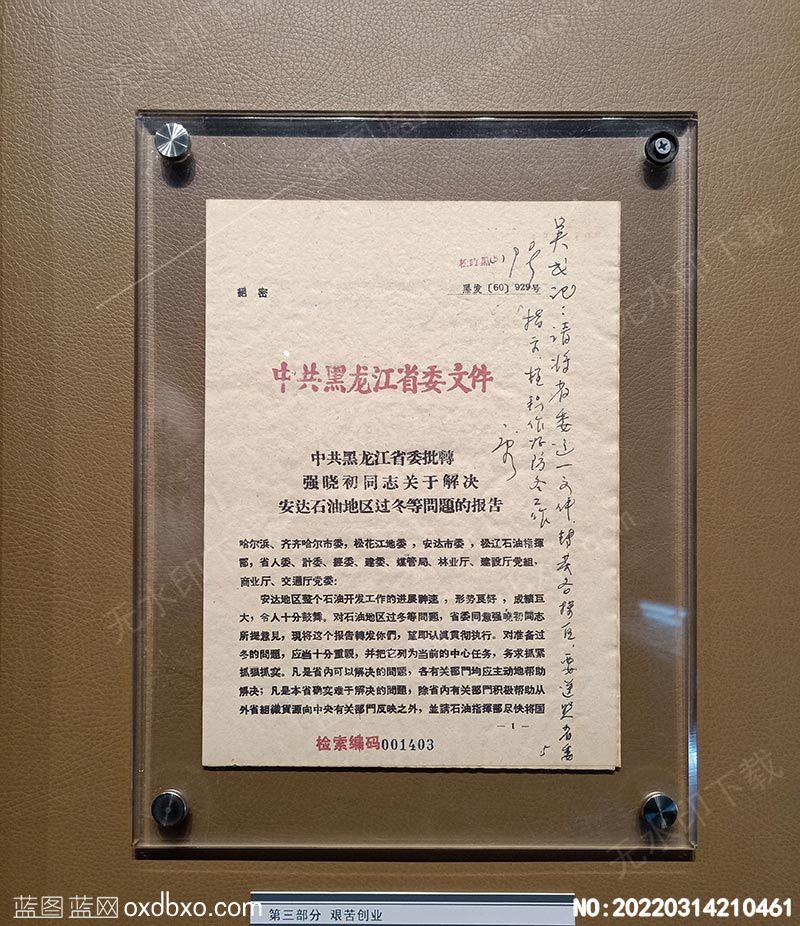 秘密
黑发〔60〕929号
中共黑龙江省委文件
中共黑龙江省委批轉
强晓初同志关于解决
安达石油地区过冬等問題的报告
哈尔浜、齐齐哈尔市委，松花江地委，安达市委，松辽石油指揮
部，省人委、計委、經委、建委、煤管局、林业厅、建設厅党組，
商业厅、交通厅党委：
安达地区整个石油开发工作的进展神速，形势良好，成績互
大，令人十分鼓舞。对石油地区过冬等問題，省委同意强晓初同志
所提意見，現将这个报告轉发你們，望即认眞貫彻执行。对准备过
冬的問題，应当十分重視，并把它列为当前的中心任务，务求抓紧
抓狠抓实。凡是省內可以解决的問題，各有关部門均应主动地帮助
解决；凡是本省确实难于解决的問題，除省內有关部門积极帮助从
外省組織貨源向中央有关部門反映之外，並請石油指揮部尽快将国
— 1 —
检索编码001403
吴书记：请将省委这一文件转发各探区，要遵照省委
指示，积作好防冬工作
第三部分 艰苦创业
蓝图蓝网oxdbxo.com
NO:20220314210461
无水印下载
oxdbxo.com